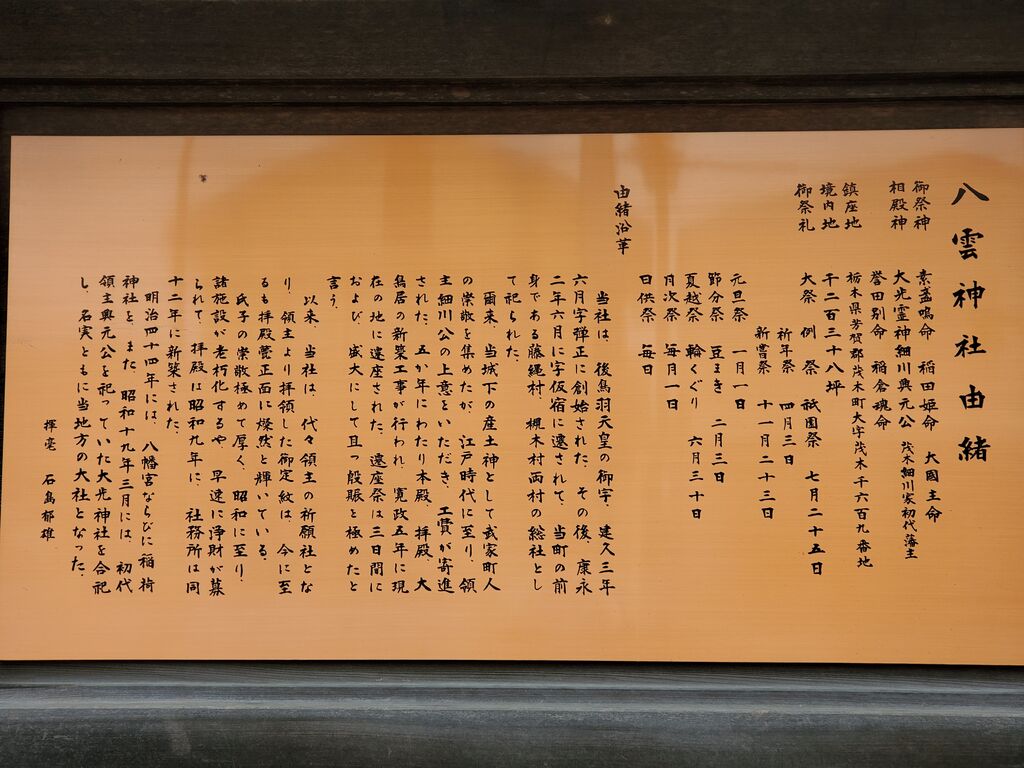 八雲神社由緒
御祭神 素盞鳴命 稲田姫命 大國主命
相殿神 大光霊神細川興元公 茂木細川家初代藩主
誉田别命 稲倉魂命
鎮座地 栃木県芳賀郡茂木町大字茂木千六百九番地
境内地 千二百三十八坪
御祭礼 大祭 例祭 祇園祭 七月二十五日
祈年祭 四月三日
新嘗祭 十一月二十三日
元旦祭 一月一日
節分祭 豆まき 二月三日
夏越祭 輪くぐり 六月三十日
月次祭 毎月一日
日供祭 毎日
由緒沿革
当社は、後鳥羽天皇の御宇、建久三年
六月字弾正に創始された。その後、康永
二年六月に字仮宿に遷されて、当町の前
身である藤縄村、槻木村両村の総社とし
て祀られた。
爾来、当城下の産土神として武家町人
の崇敬を集めたが、江戸時代に至り、領
主細川公の上意をいただき、工費が寄進
された。五か年にわたり本殿、拝殿、大
鳥居の新築工事が行われ、寛政五年に現
在の地に遷座された。遷座祭は三日間に
および、盛大にして且つ殷賑を極めたと
言う。
以来、当社は、代々領主の祈願社とな
り、領主より拝領した御定紋は、今に至
るも拝殿甍正面に燦然と輝いている。
氏子の崇敬極めて厚く、昭和に至り、
諸施設が老朽化するや、早速に浄財が募
られて、拝殿は昭和九年に、社務所は同
十二年に新築された。
明治四十四年には、八幡宮ならびに稲荷
神社を、また、昭和十九年三月には、初代
領主興元公を祀っていた大光神社を合祀
し、名実ともに当地方の大社となった。
揮毫 石島郁雄